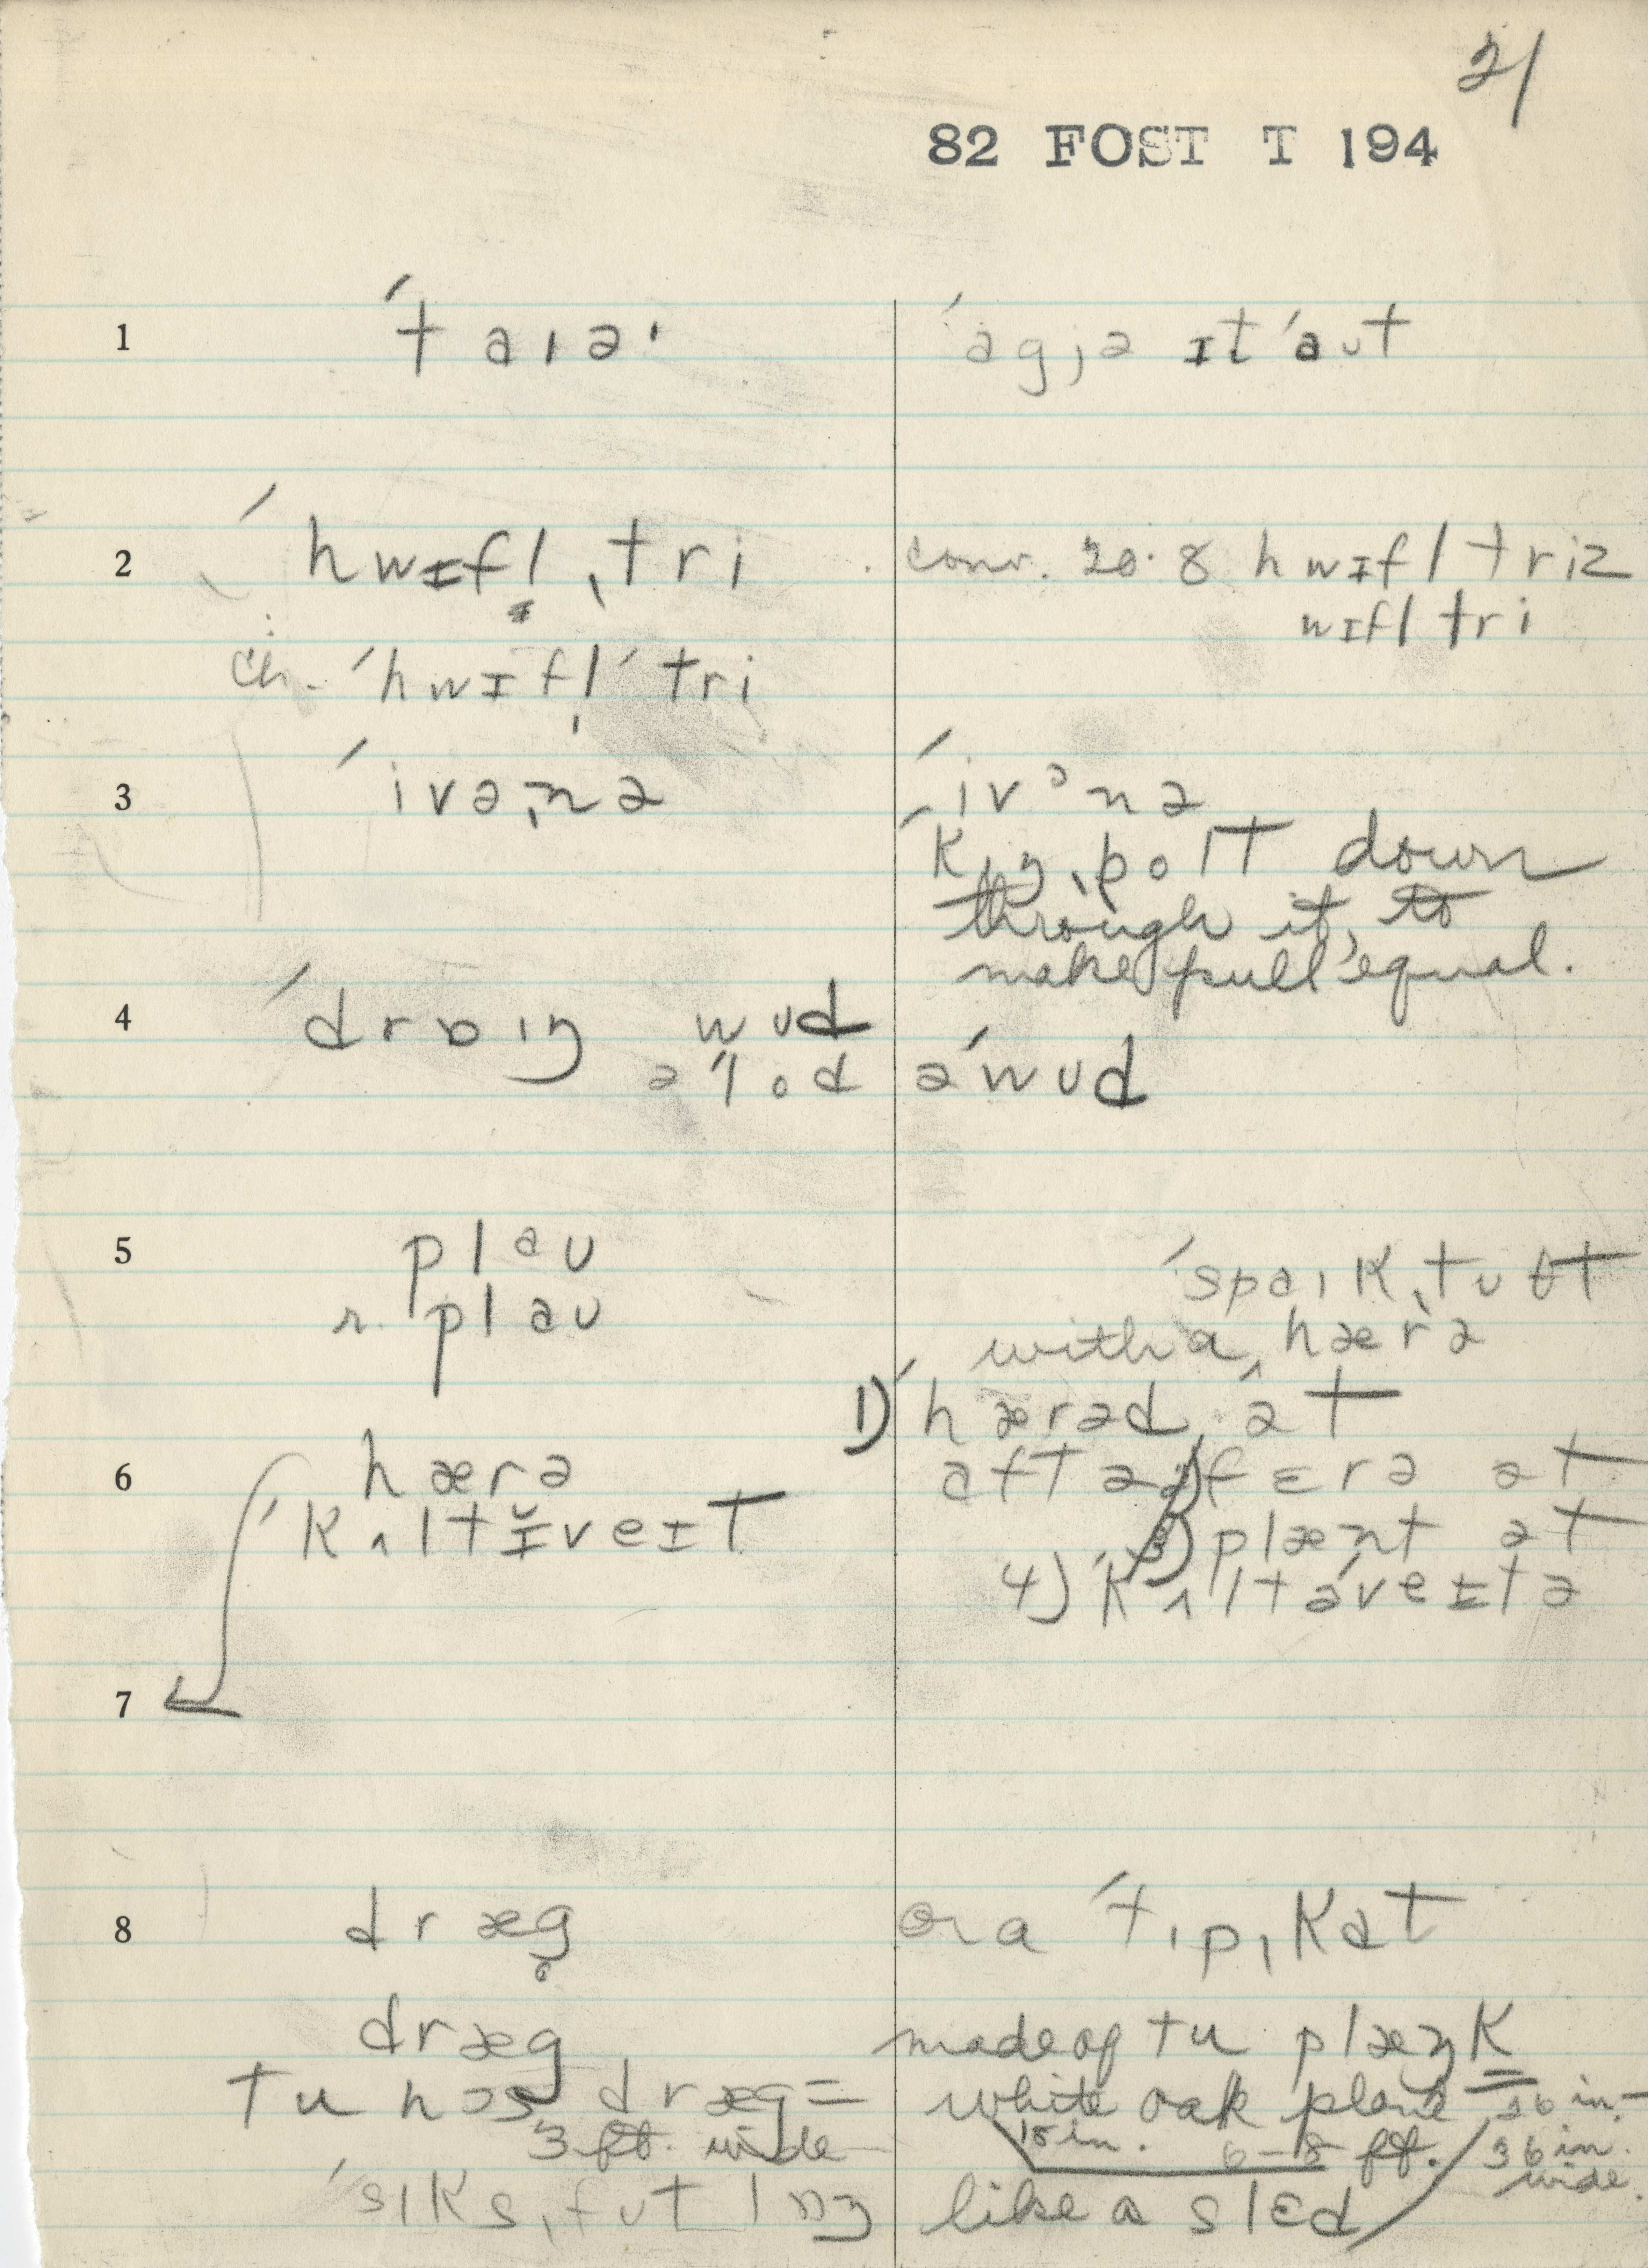 21
82 FOST T 194
1 ˈtaɪəˑ ˈagjə ɪt ˈaut
2 ˈhwɪfl̩ ˌtri conv. 20.8 hwɪfl triz
wɪfl tri
ch. ˈhwɪfl̩ ˈtri
3 ˈivəˌnə ˈivənə
ˈkɪŋˌpolt down
through it, to
make pull equal.
4 ˈdrɒɪŋ wud
ə ˈlod ə ˈwud
5 plau ˈspaɪkˌtuθt
r. plau with a ˌhærə
1) ˈhærəd ət
6 hærə aftə 2) fɛrə ət
ˈkʌltĭveɪt 3) plænt ət
4) ˈkʌltəveɪtə
7
8 dræg or a ˈtɪpˌkat
dræg made of tu plæŋk
tu hɔs dræg = white oak plank 36 in.
3 ft. wide 18 in. 6-8 ft. 36 in.
wide.
ˈsɪksˌfut lɒŋ like a slɛd